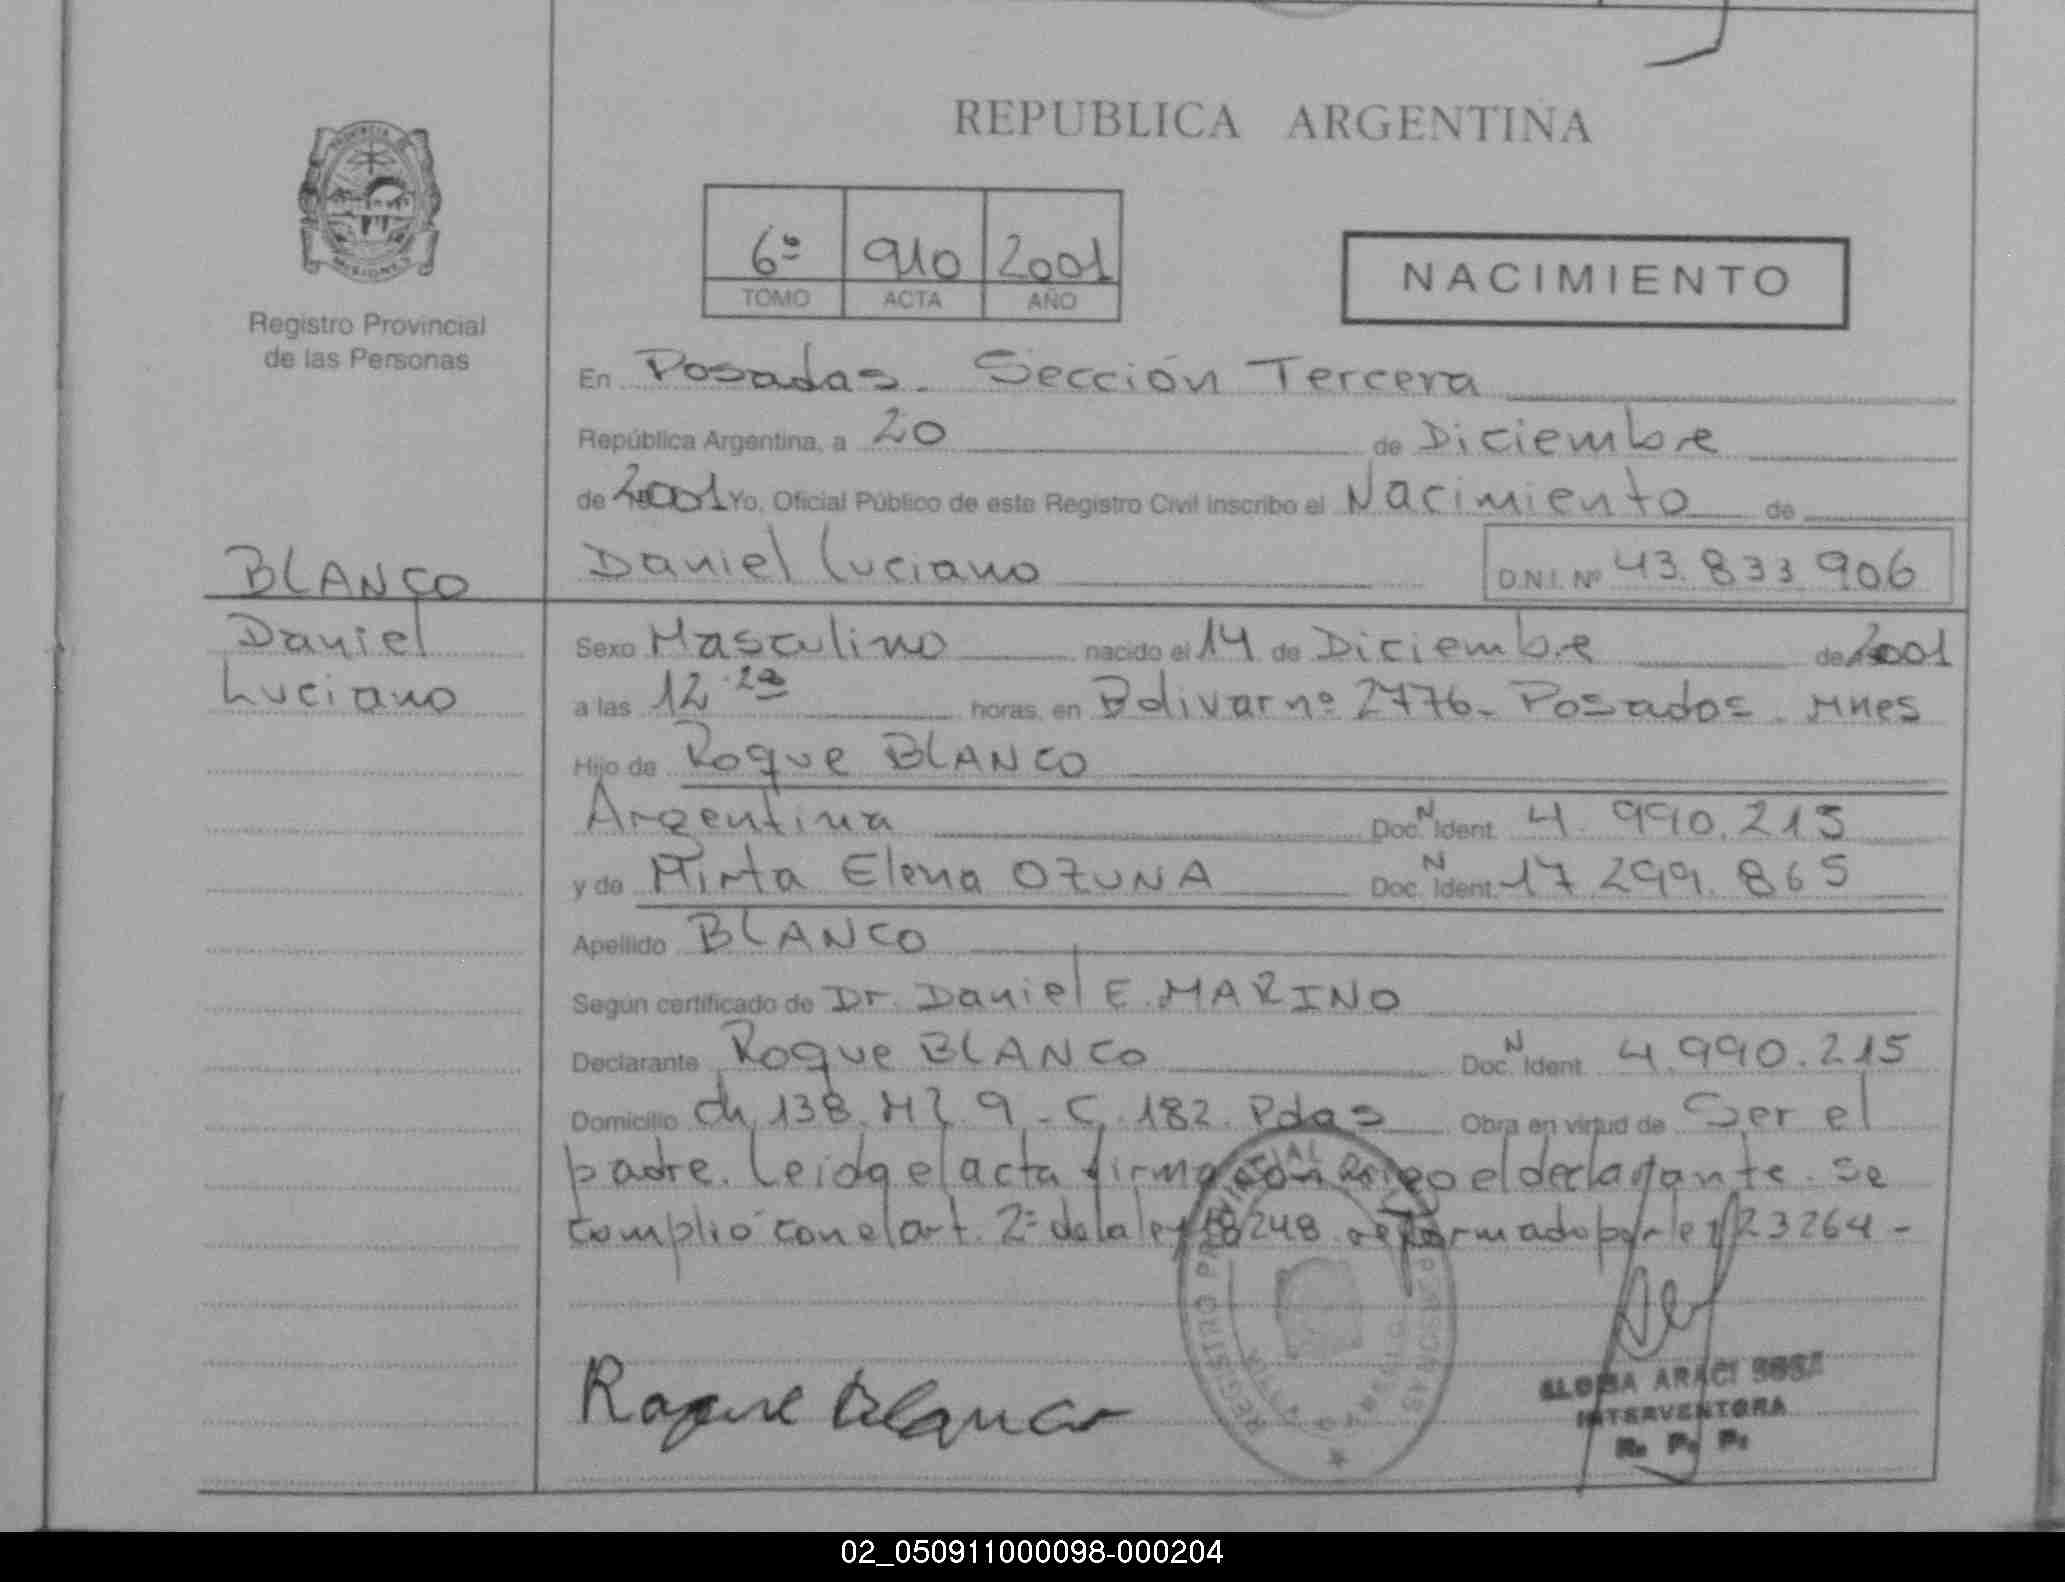 REPUBLICA ARGENTINA
PROVINCIA
MISIONES
Registro Provincial
de las Personas
6º 910 2001
TOMO ACTA AÑO
NACIMIENTO
En Posadas. Sección Tercera
República Argentina, a 20 de Diciembre
de 2001 Yo, Oficial Público de este Registro Civil inscribo el Nacimiento de
BLANCO
Daniel
Luciano
Daniel Luciano D.N.I. Nº 43.833.906
Sexo Masculino nacido el 14 de Diciembre de 2001
a las 12 horas, en Bolivar nº 2776- Posadas. Mnes
Hijo de Roque BLANCO
Argentina Doc. N Ident. 4.990.215
y de Mirta Elena OZUNA Doc. N Ident. 17.299.865
Apellido BLANCO
Según certificado de Dr. Daniel E. MARINO
Declarante Roque BLANCO Doc. N Ident. 4.990.215
Domicilio ch 138. Mz 9 - C. 182. Pdas Obra en virtud de Ser el
padre. Leida el acta firma con migo el declarante. Se
complió con el art. 2º de la ley 18248 reformado por ley 23264-
REGISTRO PROVINCIAL
Roque Blanco
ARACI SOSA
INTERVENTORA
R. P. P.
02_050911000098-000204